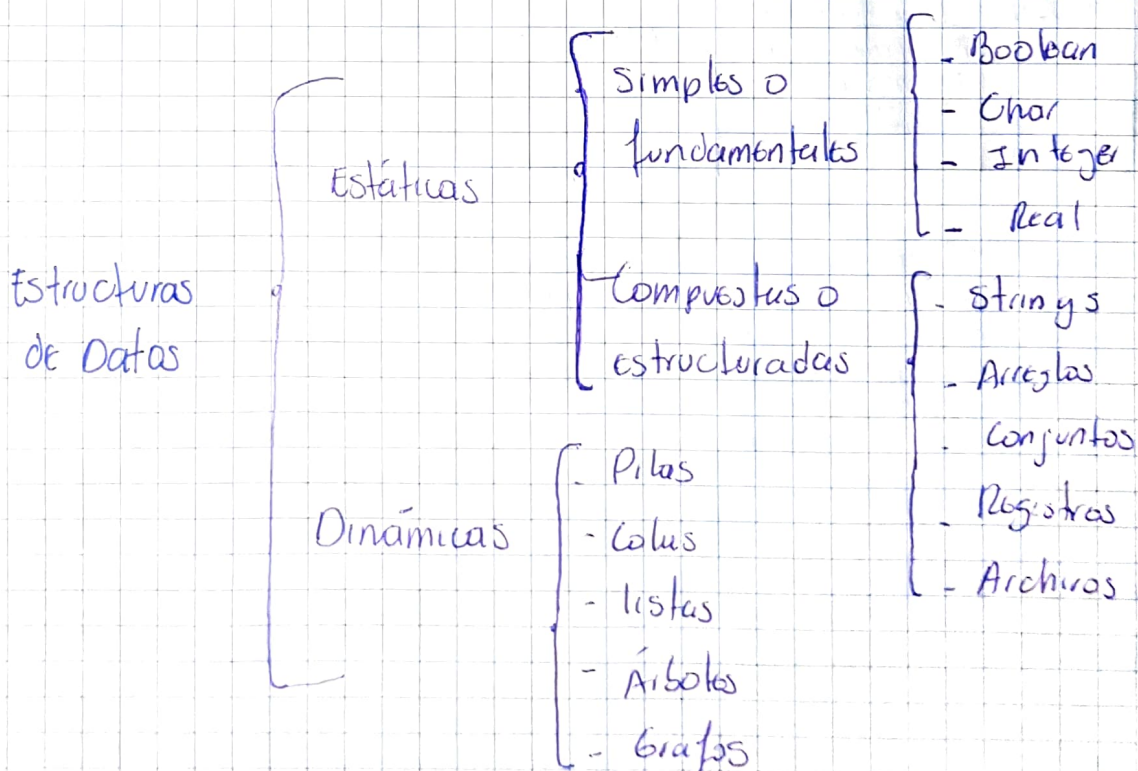 Estructuras
de Datos
Estáticas
Simples o
fundamentales
- Boolean
- Char
- Integer
- Real
Compuestas o
estructuradas
- Strings
- Arreglos
- Conjuntos
- Registros
- Archivos
Dinámicas
- Pilas
- Colas
- listas
- Árboles
- Grafos